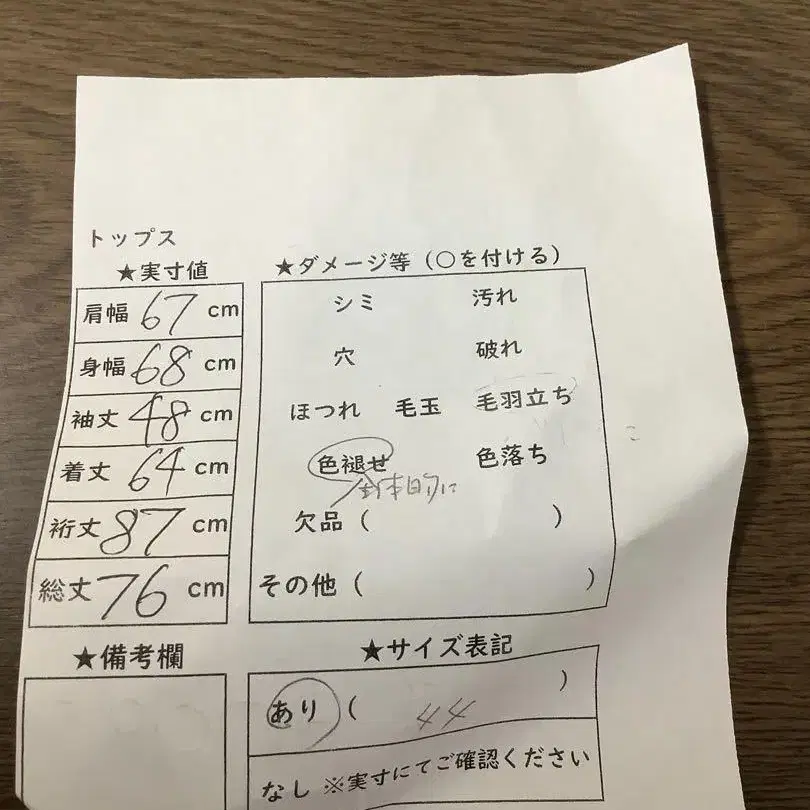 トップス
★実寸値
肩幅 67 cm
身幅 68 cm
袖丈 48 cm
着丈 64 cm
裄丈 87 cm
総丈 76 cm
★備考欄
★ダメージ等（○を付ける）
シミ 汚れ
穴 破れ
ほつれ 毛玉 毛羽立ち
色褪せ 色落ち
全体的に
欠品（ ）
その他（ ）
★サイズ表記
あり（ 44 ）
なし ※実寸にてご確認ください